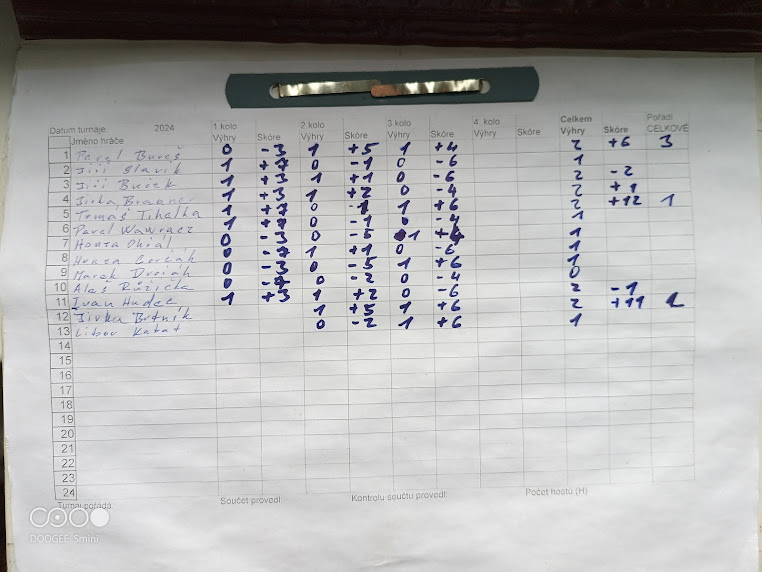 Datum turnaje: 2024 1.kolo 2.kolo 3.kolo 4. kolo Celkem Pořadí
Jméno hráče Výhry Skóre Výhry Skóre Výhry Skóre Výhry Skóre Výhry Skóre CELKOVÉ
1 Pavel Bureš 0 -3 1 +5 1 +4 2 +6 3
2 Jiří Slavík 1 +7 0 -1 0 -6 1
3 Jiří Buček 1 +3 1 +1 0 -6 2 -2
4 Jirka 1 +3 1 +2 0 -4 2 +1
5 Tomáš Tihelka 1 +7 0 1 +6 2 +12 1
6 Pavel Wawracz 1 0 -1 0 -4 1
7 Honza 0 -3 0 -5 1 1
8 Honza 0 -7 1 +1 0 -6 1
9 Marek Dvořák 0 -3 0 -5 1 +6 1
10 Aleš Růžička 0 0 -2 0 -4 0
11 Ivan Hudec 1 +3 1 +2 0 -6 2 -1
12 Jirka Brtník 1 +5 1 +6 2 +11
13 Libor Kabat 0 -2 1 +6 1
14
15
16
17
18
19
20
21
22
23
24
Turnaj pořádá: Součet provedl: Kontrolu součtu provedl: Počet hostů (H)
DOOGEE Smini